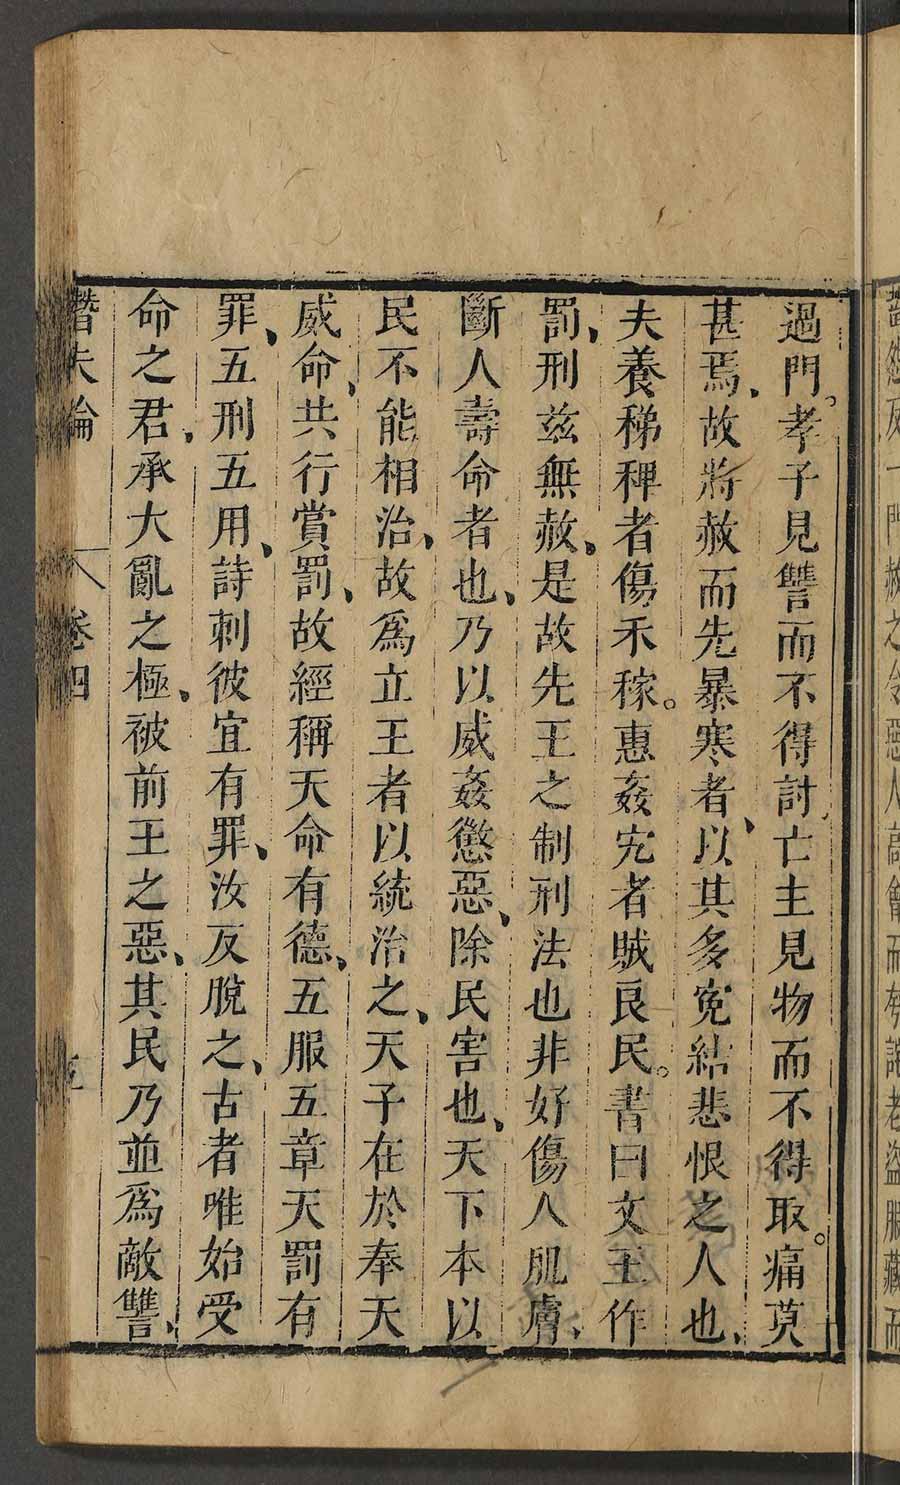 譖怨反一門赦之令惡人高會而夸詫老盜服藏而
過門。孝子見讐而不得討亡主見物而不得取。痛莫
甚焉、故將赦而先暴寒者、以其多冤結悲恨之人也、
夫養稊稗者傷禾稼。惠姦宄者賊良民。書曰文王作
罰、刑茲無赦、是故先王之制刑法也非好傷人肌膚、
斷人壽命者也、乃以威姦懲惡、除民害也、天下本以
民不能相治、故爲立王者以統治之、天子在於奉天
威命、共行賞罰、故經稱天命有德、五服五章天罰有
罪、五刑五用、詩刺彼宜有罪、汝反脫之、古者唯始受
命之君、承大亂之極、被前王之惡、其民乃並爲敵讐、
潛夫論 卷四